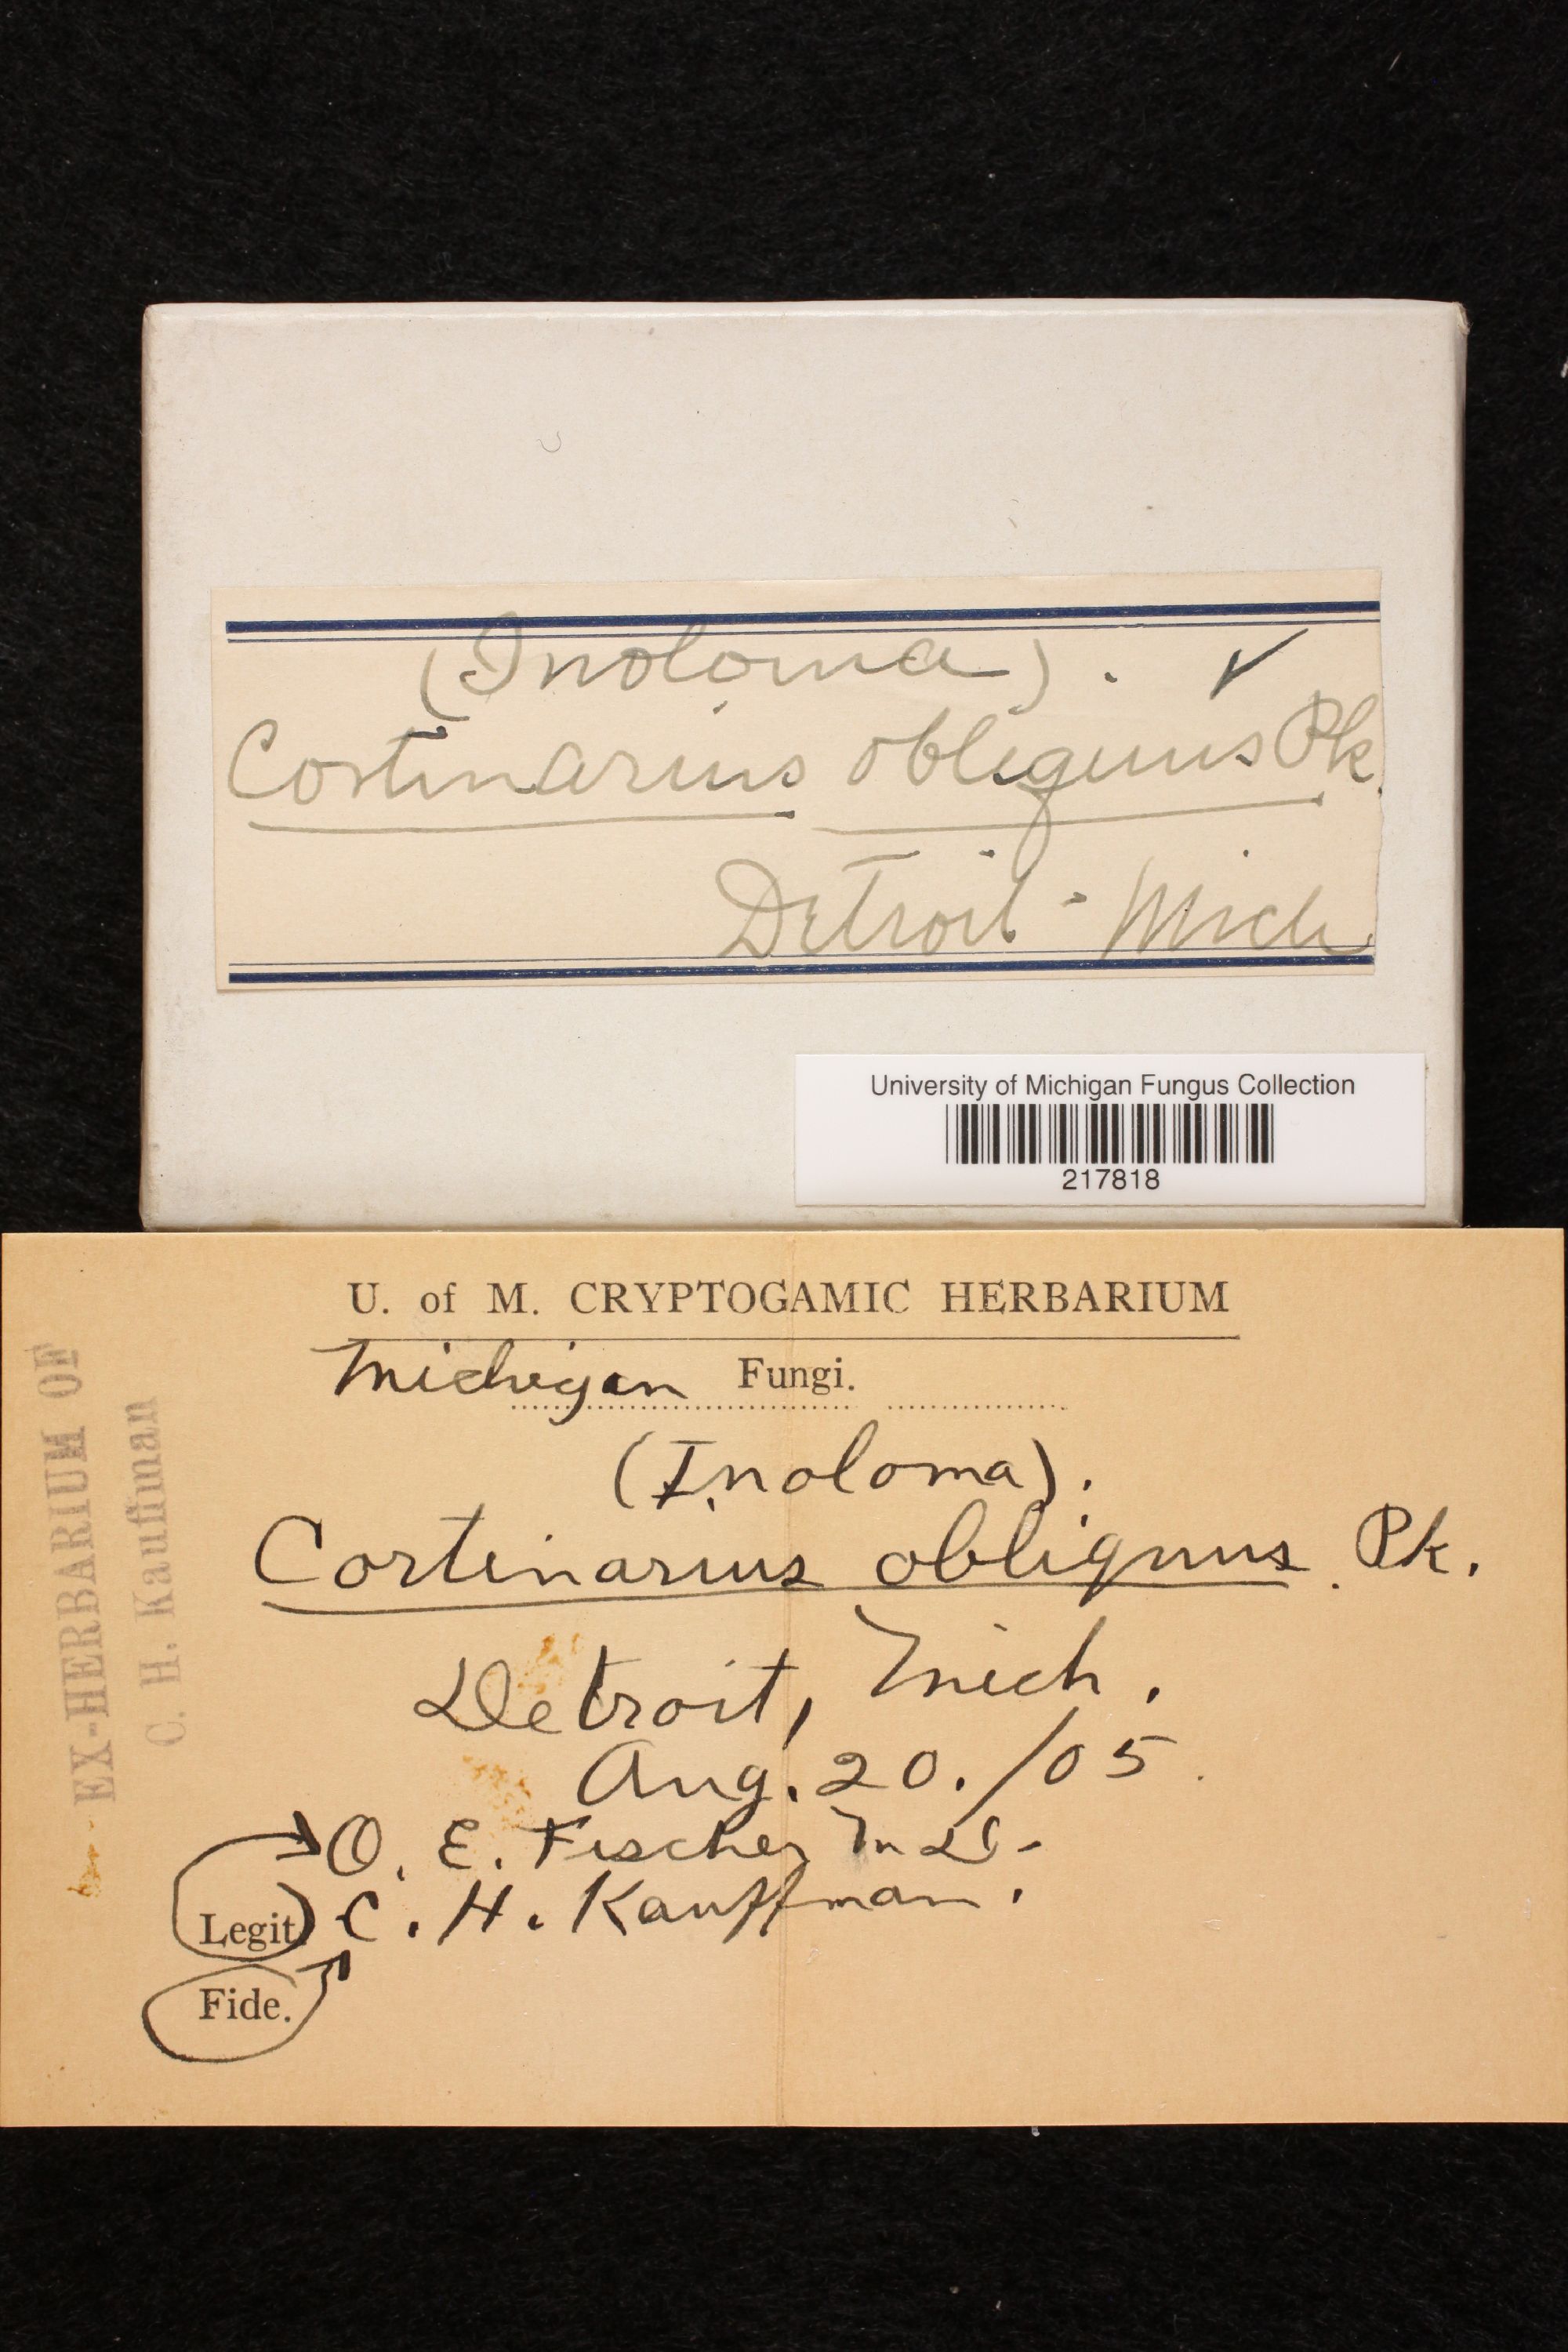 (Inoloma). ✓
Cortinarius obliquus Pk.
Detroit - Mich
University of Michigan Fungus Collection
217818
U. of M. CRYPTOGAMIC HERBARIUM
Michigan Fungi.
(Inoloma).
Cortinarius obliquus Pk.
Detroit, Mich.
Aug. 20./05.
O. E. Fischer M D.
Legit. C. H. Kauffman.
Fide.
EX-HERBARIUM OF
C. H. Kauffman